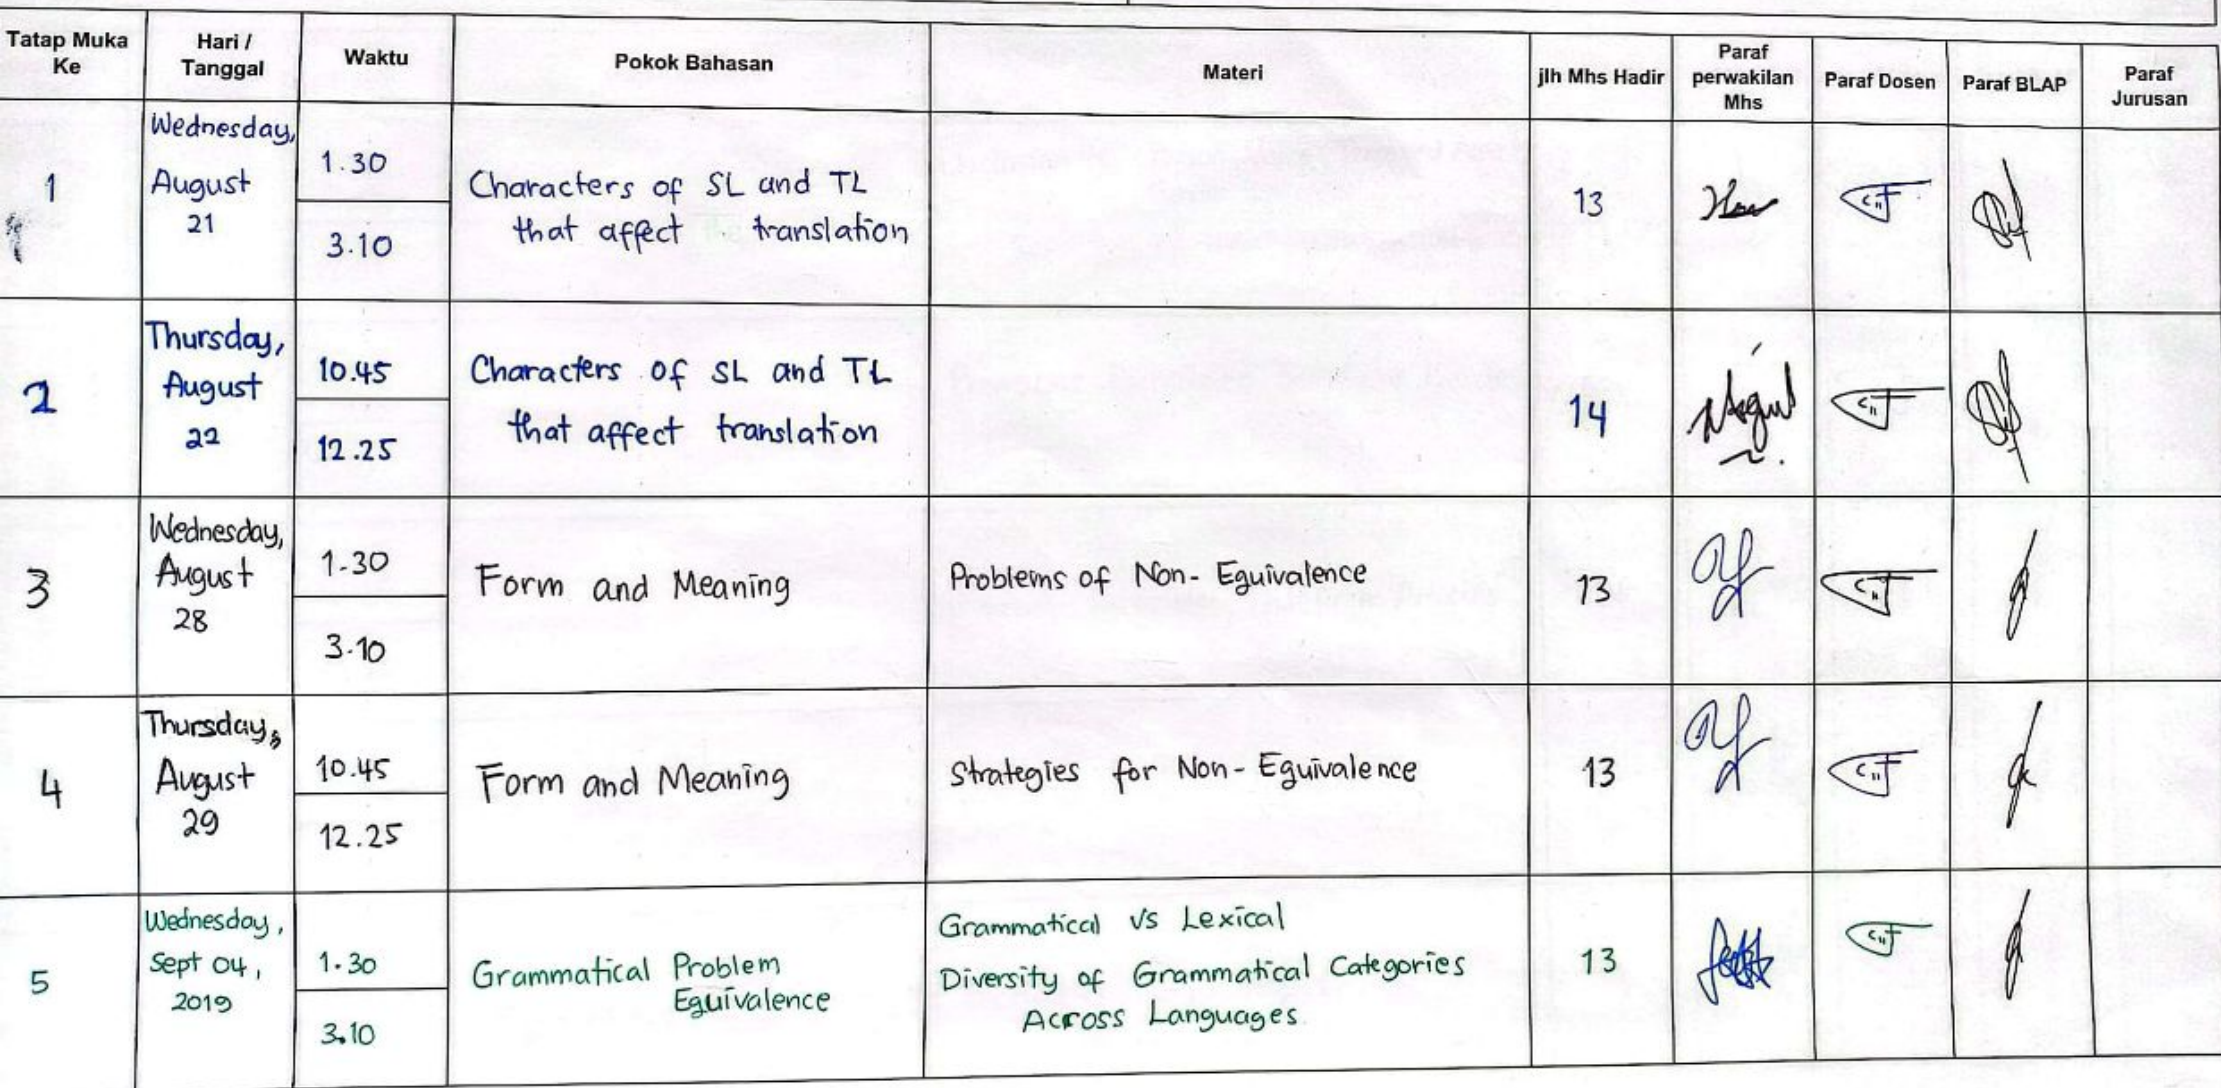 Tatap Muka Ke
Hari / Tanggal
Waktu
Pokok Bahasan
Materi
jlh Mhs Hadir
Paraf perwakilan Mhs
Paraf Dosen
Paraf BLAP
Paraf Jurusan
1
Wednesday,
August
21
1.30
3.10
Characters of SL and TL
that affect translation
13
2
Thursday,
August
22
10.45
12.25
Characters of SL and TL
that affect translation
14
3
Wednesday,
August
28
1.30
3.10
Form and Meaning
Problems of Non-Equivalence
13
4
Thursday,
August
29
10.45
12.25
Form and Meaning
Strategies for Non-Equivalence
13
5
Wednesday,
Sept 04,
2019
1.30
3.10
Grammatical Problem
Equivalence
Grammatical vs Lexical
Diversity of Grammatical Categories
Across Languages
13